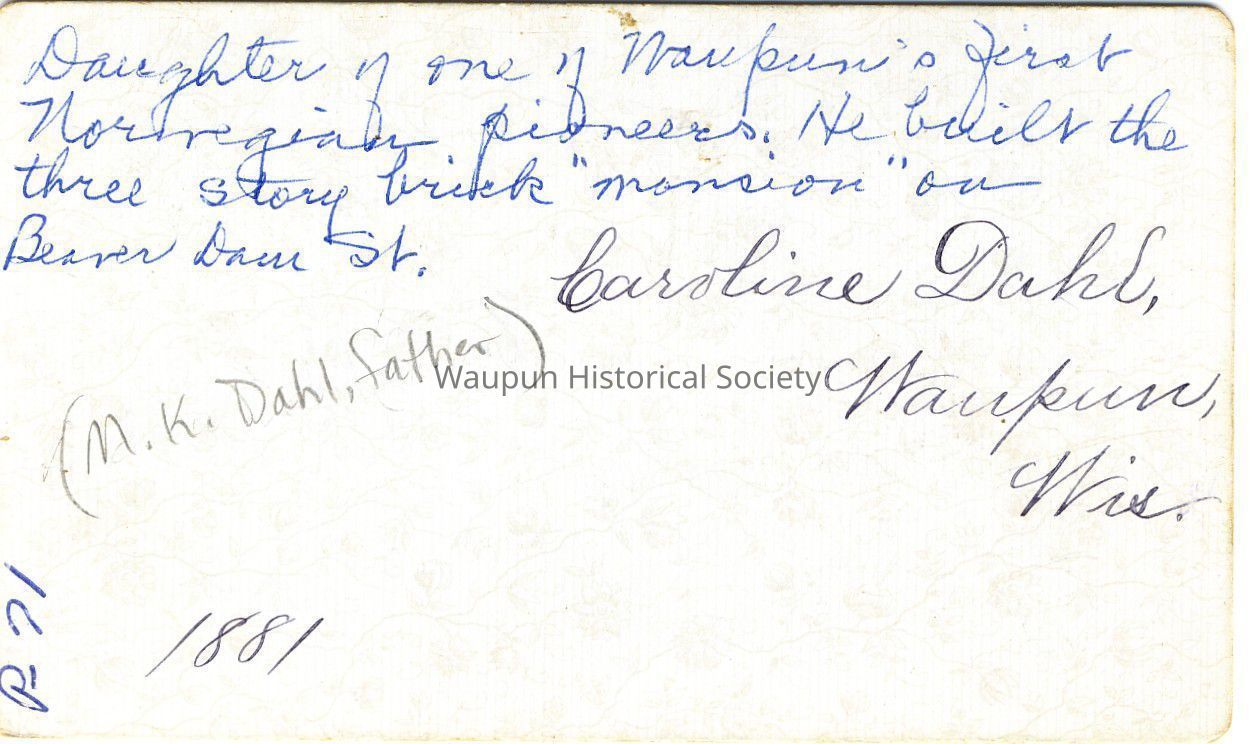 Daughter of one of Waupun's first
Norwegian pioneers. He built the
three story brick "mansion" on
Beaver Dam St.
Caroline Dahl,
(M. K. Dahl, father)
Waupun Historical Society
Waupun,
Wis.
P-71
1881